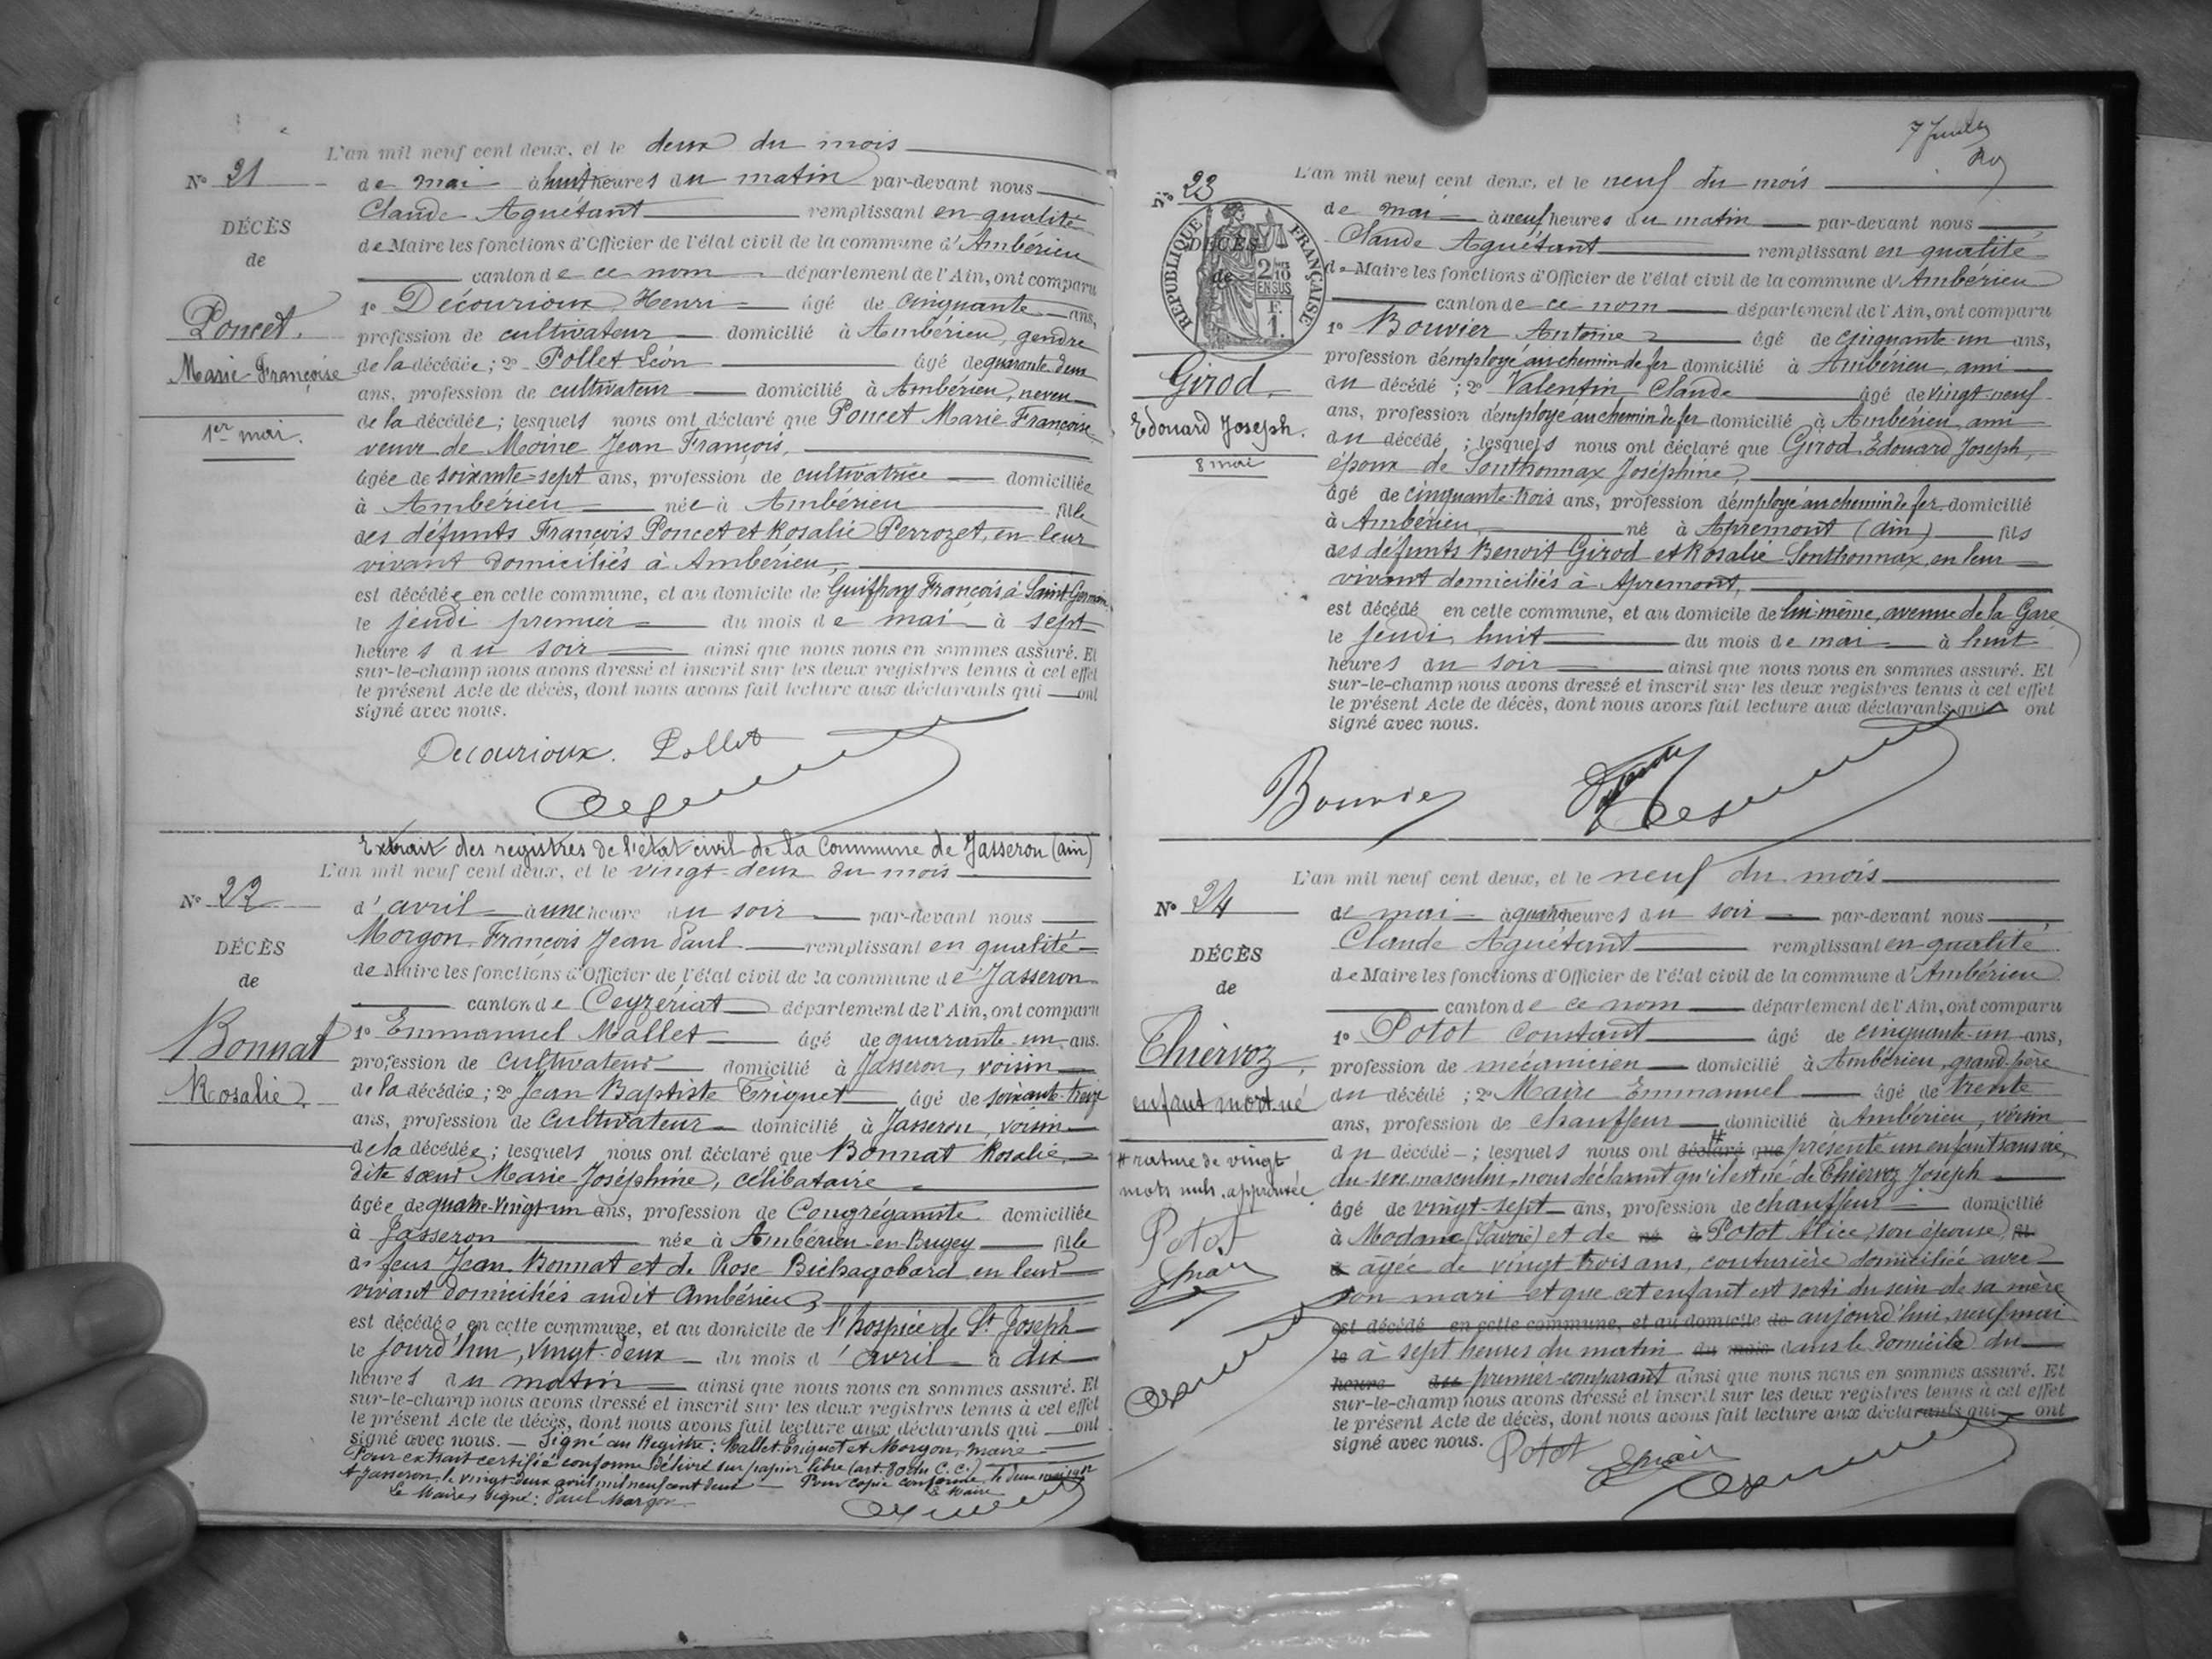 L'an mil neuf cent deux, et le deux du mois
N° 21
de mai à huit heures du matin par-devant nous
Claude Aguétant remplissant en qualité
DÉCÈS
de Maire les fonctions d'Officier de l'état civil de la commune d'Ambérieu
de
canton de ce nom département de l'Ain, ont comparu
Poncet,
1° Décourioux Henri âgé de cinquante ans,
profession de cultivateur domicilié à Ambérieu, gendre
Marie Françoise
de la décédée; 2° Pollet Léon âgé de quarante deux
ans, profession de cultivateur domicilié à Ambérieu, neveu
1er mai.
de la décédée; lesquels nous ont déclaré que Poncet Marie Françoise
veuve de Moine Jean François,
âgée de soixante-sept ans, profession de cultivatrice domiciliée
à Ambérieu née à Ambérieu fille
des défunts François Poncet et Rosalie Perrozet, en leur
vivant domiciliés à Ambérieu,
est décédée en cette commune, et au domicile de Guiffray François à Saint Germain
le jeudi premier du mois de mai à sept
heures du soir ainsi que nous nous en sommes assuré. Et
sur-le-champ nous avons dressé et inscrit sur les deux registres tenus à cet effet
le présent Acte de décès, dont nous avons fait lecture aux déclarants qui ont
signé avec nous.
Decourioux. Pollet
Extrait des registres de l'état civil de la Commune de Jasseron (Ain)
L'an mil neuf cent deux, et le vingt-deux du mois
N° 22
d'avril à une heure du soir par-devant nous
Morgon François Jean Paul remplissant en qualité
DÉCÈS
de Maire les fonctions d'Officier de l'état civil de la commune de Jasseron
de
canton de Ceyzériat département de l'Ain, ont comparu
Bonnat
1° Emmanuel Mallet âgé de quarante-un ans.
profession de cultivateur domicilié à Jasseron, voisin
Rosalie.
de la décédée; 2° Jean Baptiste Triquet âgé de soixante-treize
ans, profession de Cultivateur domicilié à Jasseron, voisin
de la décédée; lesquels nous ont déclaré que Bonnat Rosalie,
dite sœur Marie-Joséphine, célibataire
âgée de quatre-vingt-un ans, profession de Congréganiste domiciliée
à Jasseron née à Ambérieu-en-Bugey fille
de feus Jean Bonnat et de Rose Bichagobard en leur
vivant domiciliés audit Ambérieu,
est décédée en cette commune, et au domicile de l'hospice de St Joseph
le jourd'hui, vingt-deux du mois d'avril à dix
heures du matin ainsi que nous nous en sommes assuré. Et
sur-le-champ nous avons dressé et inscrit sur les deux registres tenus à cet effet
le présent Acte de décès, dont nous avons fait lecture aux déclarants qui ont
signé avec nous. — Signé au Registre: Mallet, Triquet et Morgon, maire
Pour extrait certifié conforme délivré sur papier libre (art. 80 du C. C.)
A Jasseron, le vingt-deux avril mil neuf cent deux Pour copie conforme, le deux mai 1902
Le Maire, signé: Paul Morgon Le Maire
7 Juillet
L'an mil neuf cent deux, et le neuf du mois
N° 23
de mai à neuf heures du matin par-devant nous
Claude Aguétant remplissant en qualité
RÉPUBLIQUE FRANÇAISE
2/10 EN SUS
F. 1.
DÉCÈS
de
de Maire les fonctions d'Officier de l'état civil de la commune d'Ambérieu
canton de ce nom département de l'Ain, ont comparu
1° Bouvier Antoine âgé de cinquante-un ans,
profession d'employé au chemin de fer domicilié à Ambérieu, ami
Girod,
du décédé; 2° Valentin Claude âgé de vingt-neuf
ans, profession d'employé au chemin de fer domicilié à Ambérieu, ami
Edouard Joseph.
du décédé; lesquels nous ont déclaré que Girod Edouard Joseph,
8 mai
époux de Sonthonnax Joséphine,
âgé de cinquante-trois ans, profession d'employé au chemin de fer domicilié
à Ambérieu, né à Apremont (Ain) fils
des défunts Benoit Girod et Rosalie Sonthonnax, en leur
vivant domiciliés à Apremont,
est décédé en cette commune, et au domicile de lui-même, avenue de la Gare
le jeudi huit du mois de mai à huit
heures du soir ainsi que nous nous en sommes assuré. Et
sur-le-champ nous avons dressé et inscrit sur les deux registres tenus à cet effet
le présent Acte de décès, dont nous avons fait lecture aux déclarants qui ont
signé avec nous.
Bouvier
L'an mil neuf cent deux, et le neuf du mois
N° 24
de mai à quatre heures du soir par-devant nous
Claude Aguétant remplissant en qualité
DÉCÈS
de Maire les fonctions d'Officier de l'état civil de la commune d'Ambérieu
de
canton de ce nom département de l'Ain, ont comparu
Thiervoz,
1° Potot Constant âgé de cinquante-un ans,
profession de mécanicien domicilié à Ambérieu, grand-père
enfant mort né
du décédé; 2° Maire Emmanuel âgé de trente
ans, profession de chauffeur domicilié à Ambérieu, voisin
# rature de vingt
mots nuls, approuvée
du décédé; lesquels nous ont déclaré que # présenté un enfant sans vie,
du sexe masculin, nous déclarant qu'il est né de Thiervoz Joseph
âgé de vingt-sept ans, profession de chauffeur domicilié
Potot
à Modane (Savoie) et de né à Potot Alice, son épouse,
à âgée de vingt trois ans, couturière domiciliée avec
son mari et que cet enfant est sorti du sein de sa mère
est décédé en cette commune, et au domicile de aujourd'hui, neuf mai
le à sept heures du matin du mois dans le domicile du
heure du premier comparant ainsi que nous nous en sommes assuré. Et
sur-le-champ nous avons dressé et inscrit sur les deux registres tenus à cet effet
le présent Acte de décès, dont nous avons fait lecture aux déclarants qui ont
signé avec nous. Potot